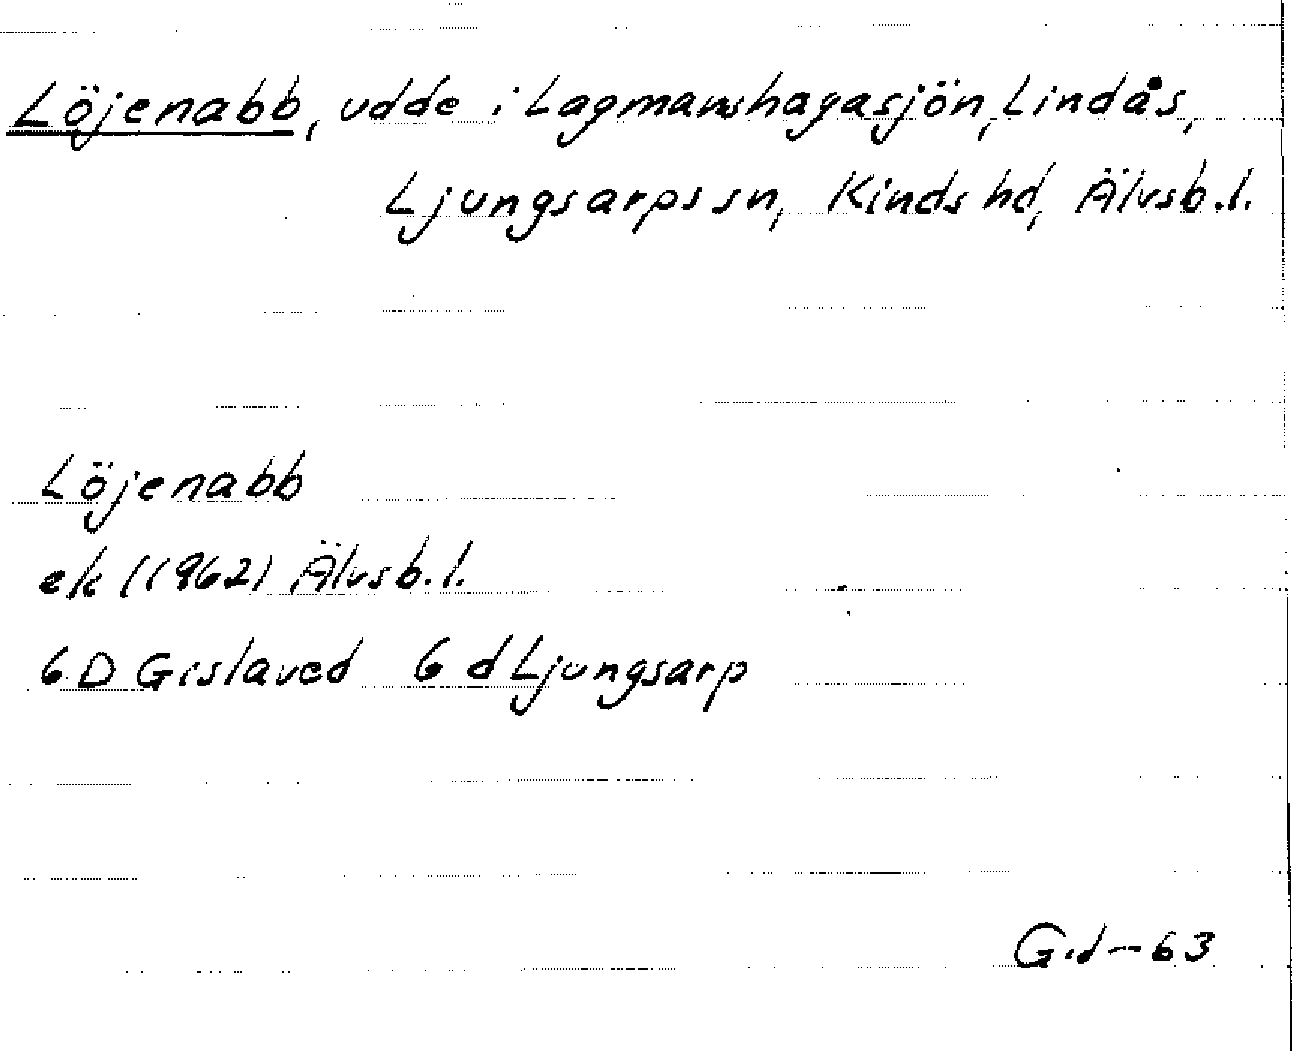 Löjenabb, udde i Lagmanshagasjön, Lindås,
Ljungsarps sn, Kinds hd, Älvsb.l.
Löjenabb
ek (1962) Älvsb.l.
6D Gislaved 6 d Ljungsarp
G.d-63